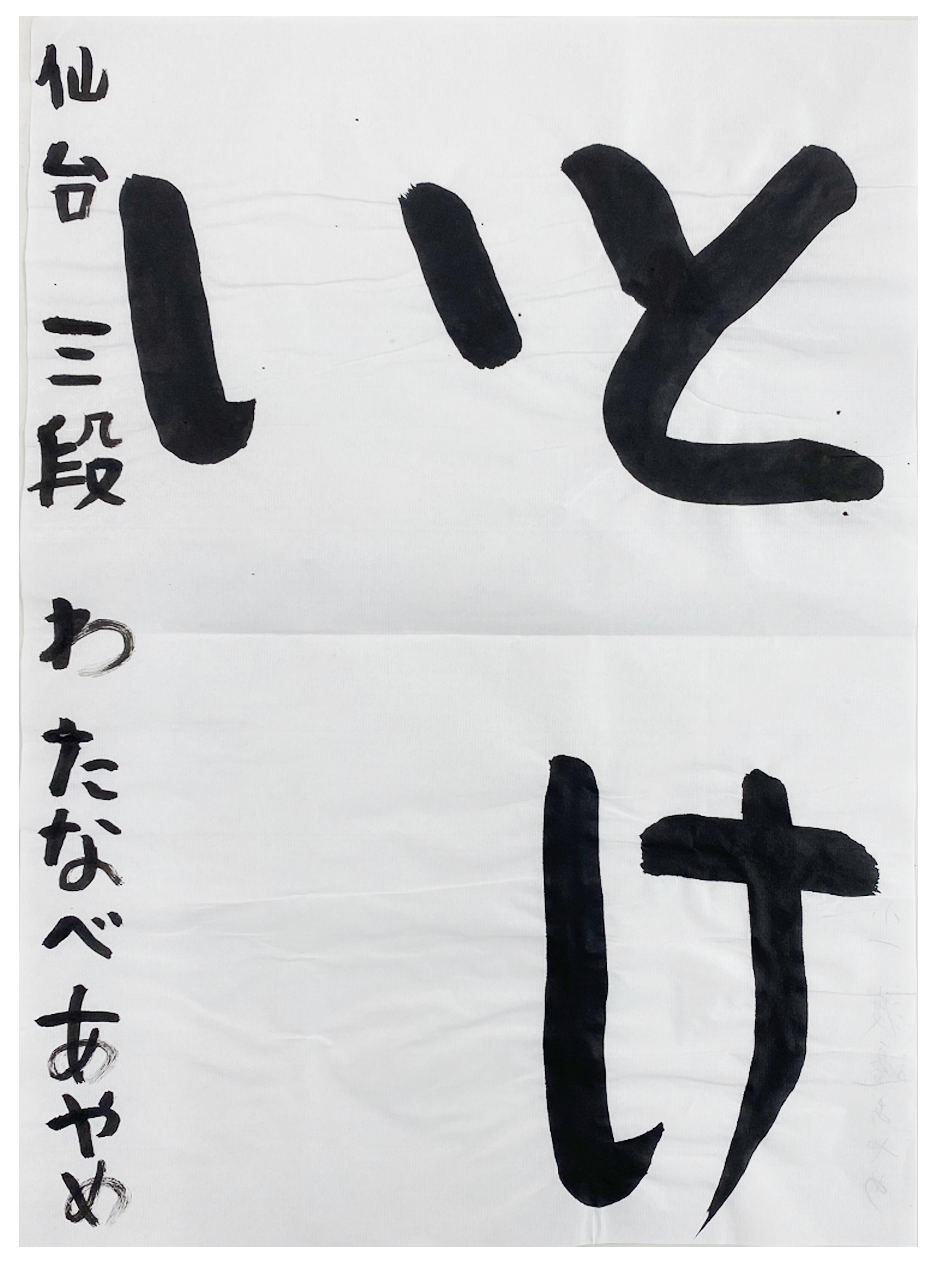 とけ
い
仙台 三段 わたなべあやめ